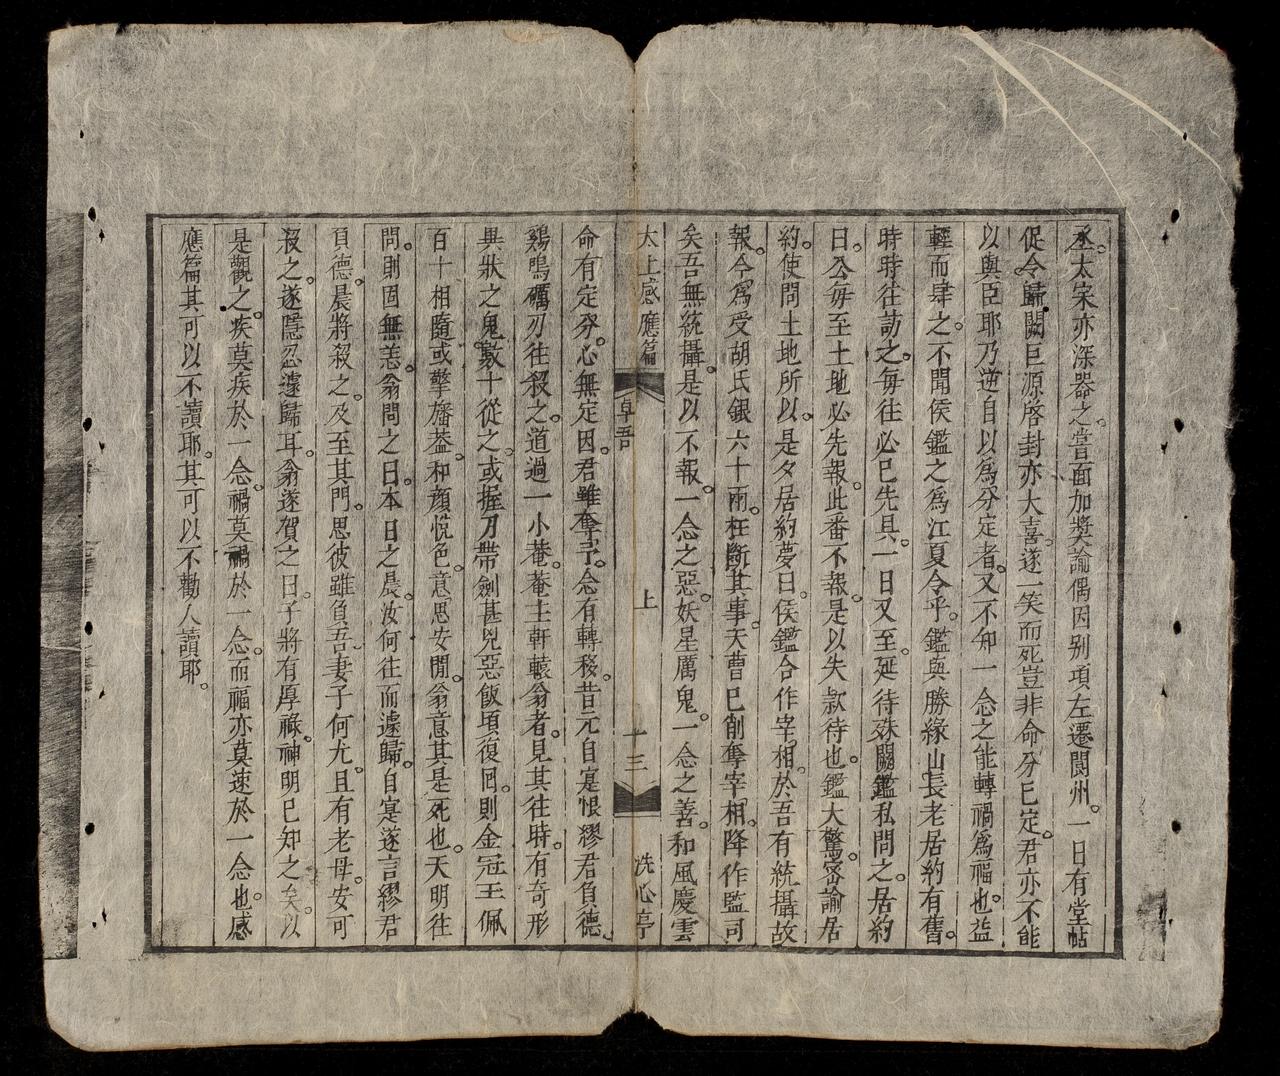 丞。太宗亦深器之。嘗面加獎諭偶因别項左遷閬州。一日有堂帖
促令歸闕巨源啓封亦大喜。遂一笑而死豈非命分已定。君亦不能
以與臣耶乃逆自以爲分定者。又不知一念之能轉禍爲福也。益
輕而肆之。不聞侯鑑之爲江夏令乎。鑑與勝緣山長老居約有舊。
時時往訪之。每往必已先具。一日又至。延待殊闕鑑私問之。居約
曰。公每至土地必先報。此番不報。是以失款待也。鑑大驚。密諭居
約。使問土地所以。是夕居約夢曰。侯鑑合作宰相。於吾有統攝故
報。今爲受胡氏銀六十兩。枉斷其事。天曹已削奪宰相。降作監司
矣吾無統攝。是以不報。一念之惡。妖星厲鬼。一念之善。和風慶雲
太上感應篇 卓吾 上 十三 洗心亭
命有定分。心無定因。君雖奪予。念有轉移。昔元自寔恨繆君負德。
鷄鳴礪刃往殺之。道過一小菴。菴主軒轅翁者。見其往時。有奇形
異狀之鬼數十從之。或握刀帶劍甚兇惡飯頃復囘。則金冠玉佩
百十相隨或擎旛葢。和顏悅色。意思安閒。翁意其是死也。天明往
問。則固無恙。翁問之曰。本日之晨。汝何往而遽歸。自寔遂言繆君
負德。晨將殺之。及至其門。思彼雖負吾。妻子何尤。且有老母。安可
殺之。遂隱忍遽歸耳。翁遂賀之曰。子將有厚祿。神明已知之矣。以
是觀之。疾莫疾於一念。禍莫禍於一念。而福亦莫速於一念也。感
應篇其可以不讀耶。其可以不勸人讀耶。